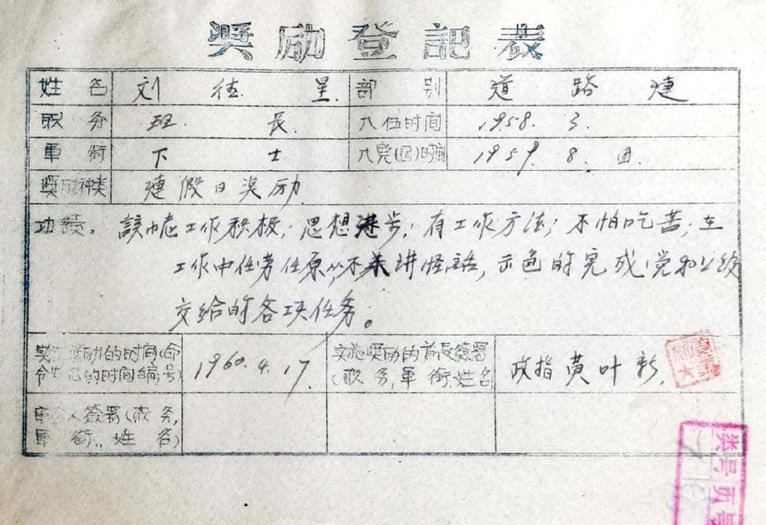 奨励登記表
姓名 刘德星 部别 道路連
职务 班長 入伍时间 1958.3.
軍衔 下士 入党(团)时间 1959.8.团.
奨励种类 連假日奖励
功績. 該同志工作积极;思想進步;有工作方法;不怕吃苦;在
工作中任劳任怨 从不 讲怪話, 出色的完成党和上级
交給的各项任务。
奨励的时间(命 1960.4.17. 实施奨励的首長簽署 政指黄叶新.
令 的时间編号) (职务,軍衔,姓名
人簽署(职务,
軍衔,姓名)
类号页号